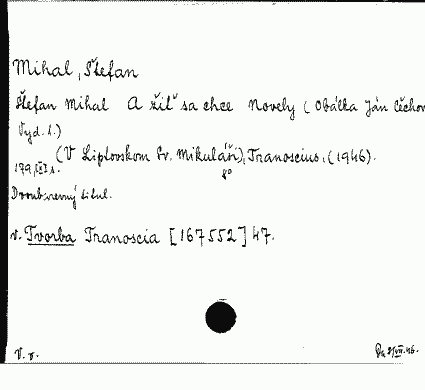 Mihal, Štefan
Štefan Mihal A žiť sa chce Novely (Obálka Ján Čechov
Vyd. 1.)
(V Liptovskom Sv. Mikuláši), Tranoscius, (1946).
179, [III] s. 8°
Dvoubarevný titul.
v. Tvorba Tranoscia [167552] 47.
V. r.